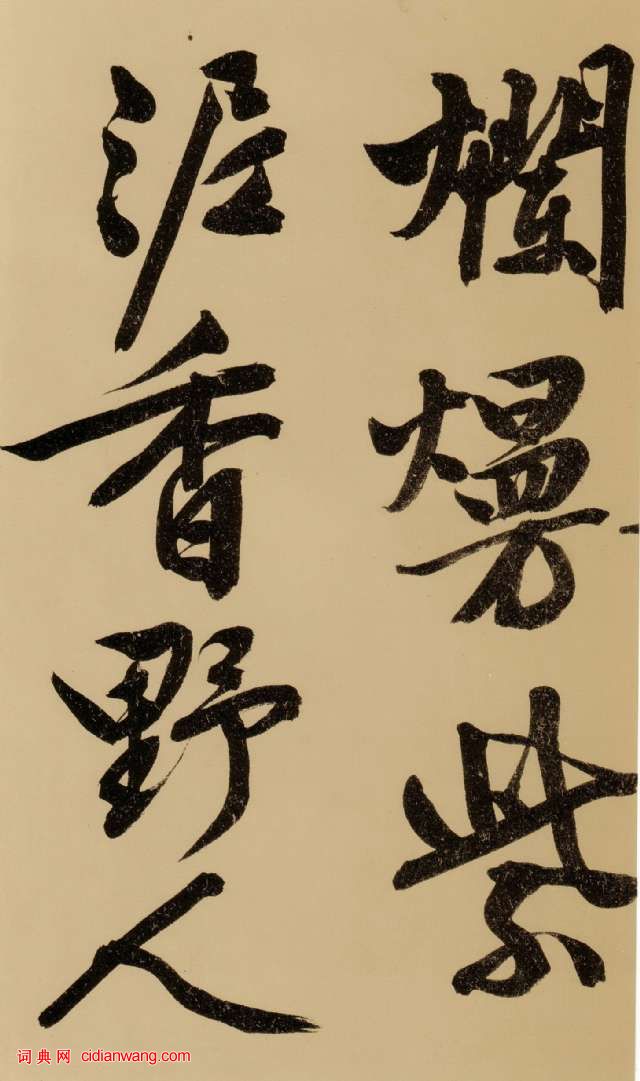 欄熳紫
泥香野人
词典网 cidianwang.com